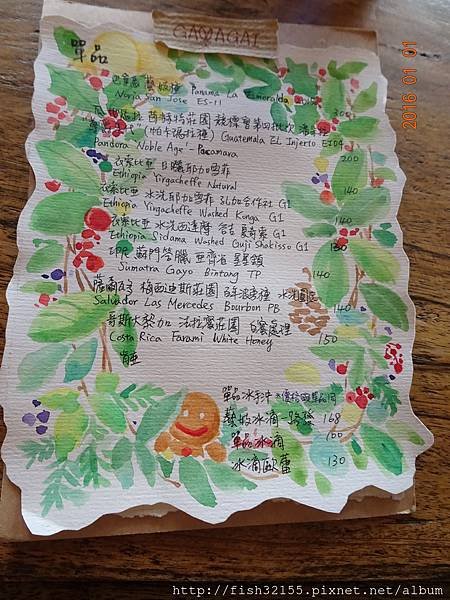 GAVAGAI
單品
2016 01 01
藝妓種 Panama La Esmeralda
Noria San Jose ES-11 300
莊園 競標會第四批次
(帕卡瑪拉種) Guatemala EL Injerto EI04
Pandora Noble Age'- Pacamara 200
衣索比亞 日曬耶加雪菲
Ethiopia Yirgacheffe Natural 140
衣索比亞 水洗耶加雪菲 孔加合作社 G1
Ethiopia Yirgacheffe Washed Konga G1 140
衣索比亞 水洗西達摩 古吉 夏奇索 G1
Ethiopia Sidama Washed Guji Shakisso G1 130
印尼 蘇門答臘 亞齊省
Sumatra Gayo Bintang TP 140
薩爾瓦多 梅西迪斯莊園 波旁種 水洗
Salvador Las Mercedes Bourbon PB 140
哥斯大黎加 法拉蜜莊園 白蜜處理
Costa Rica Farami White Honey 150
單品冰手沖 價格同單品
藝妓冰滴一路發 168
單品冰滴 100
冰滴歐蕾 130
http://fish32155.pixnet.net/album